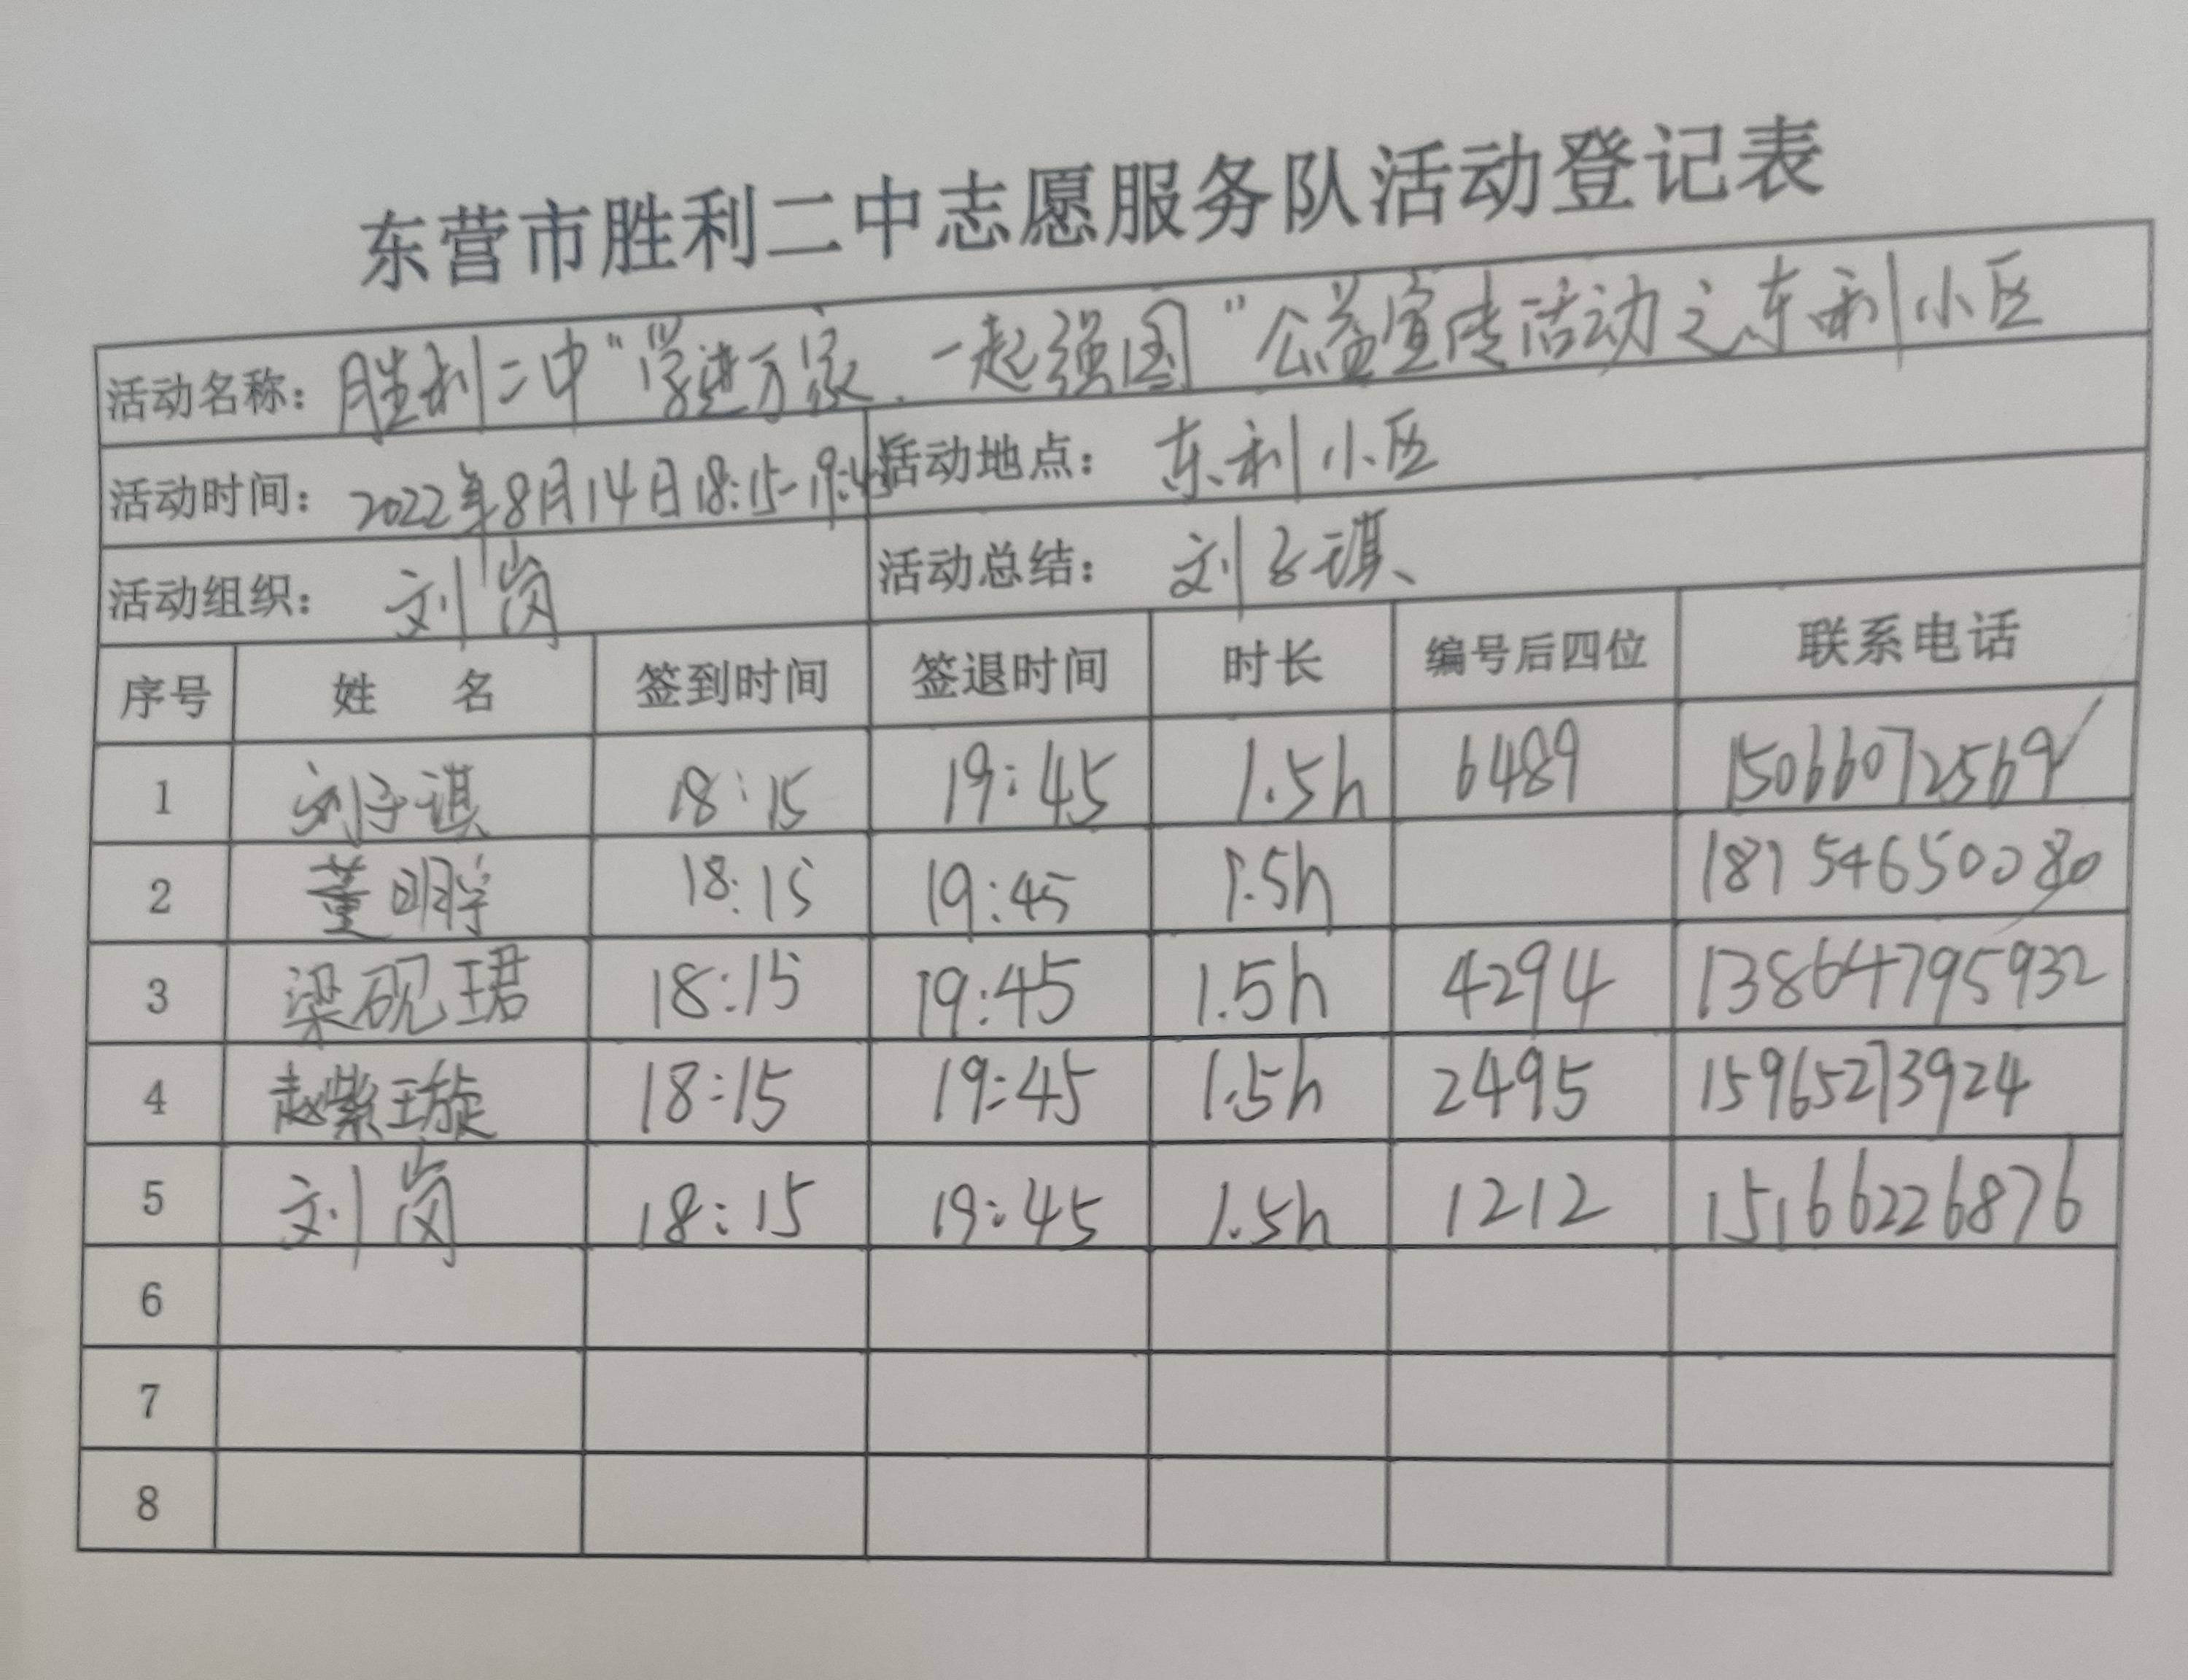 东营市胜利二中志愿服务队活动登记表
活动名称：胜利二中“学进万家、一起强国”公益宣传活动之东利小区
活动时间：2022年8月14日18:15-19:45 活动地点：东利小区
活动组织：刘岗 活动总结：刘子琪
序号 姓 名 签到时间 签退时间 时长 编号后四位 联系电话
1 刘子琪 18:15 19:45 1.5h 6489 15066072569
2 董明宇 18:15 19:45 1.5h 18754650080
3 梁砚珺 18:15 19:45 1.5h 4294 13864795932
4 赵紫璇 18:15 19:45 1.5h 2495 15965273924
5 刘岗 18:15 19:45 1.5h 1212 15166226876
6
7
8